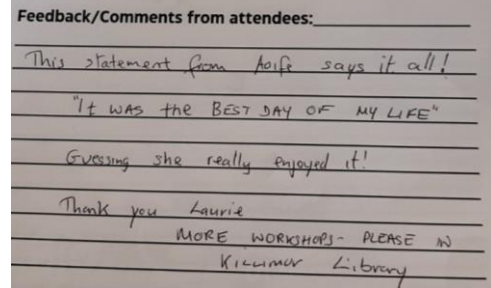 Feedback/Comments from attendees:
This statement from Aoife says it all!
"It was the BEST DAY OF MY LIFE"
Guessing she really enjoyed it!
Thank you Laurie
MORE WORKSHOPS - PLEASE IN
Killimor Library